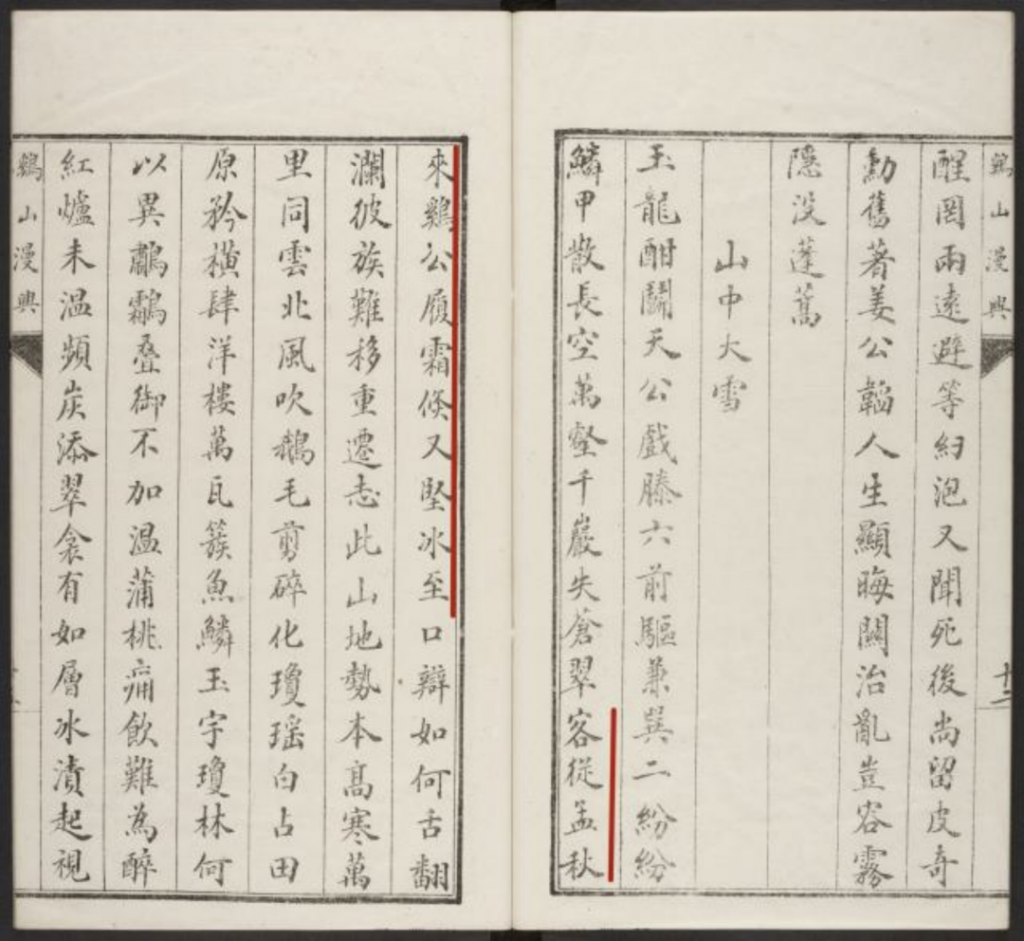 鷄山漫興
十二
醒罔兩遠避等紉泡又聞死後尚留皮奇
勳舊著姜公韜人生顯晦關治亂豈容霧
隱沒蓬蒿
山中大雪
玉龍酣鬭天公戲滕六前驅兼巽二紛紛
鱗甲散長空萬壑千巖失蒼翠客從孟秋
來鷄公履霜倐又堅冰至口辯如何舌翻
瀾彼族難移重遷志此山地勢本高寒萬
里同雲北風吹鵝毛剪碎化瓊瑶白占田
原矜橫肆洋樓萬瓦簇魚鱗玉宇瓊林何
以異鷫鸘叠御不加温蒲桃痛飲難為醉
紅爐未温頻炭添翠衾有如層冰漬起視
鷄山漫興